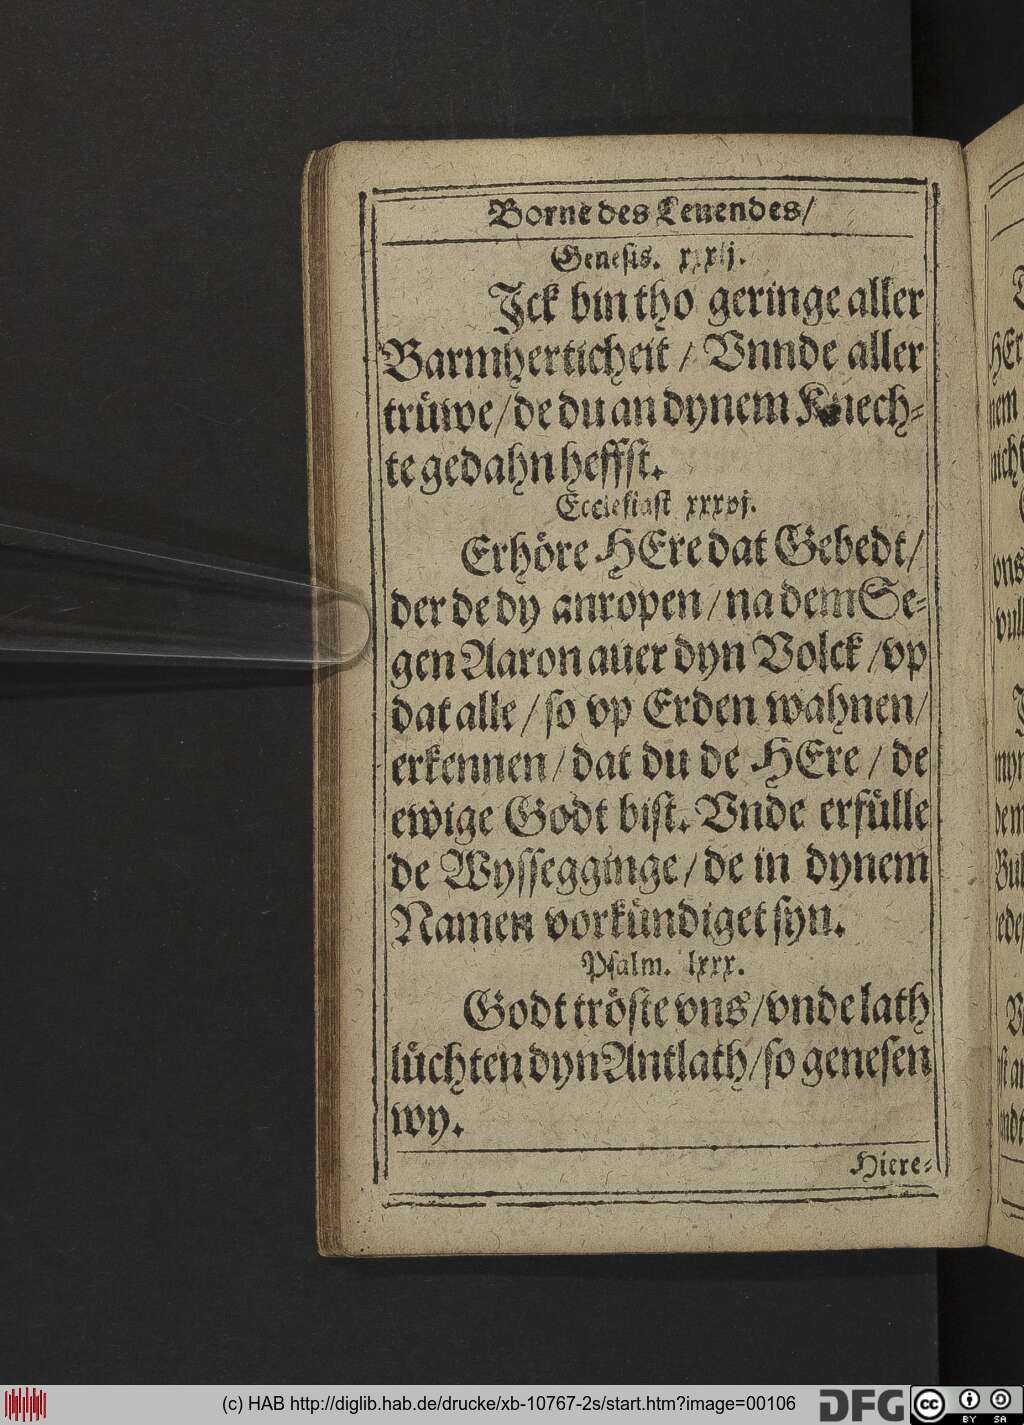 Borne des Leuendes/
Genesis. xxxij.
Ick bin tho geringe aller
Barmherticheit / Vnnde aller
trüwe/ de du an dynem Knech-
te gedahn heffst.
Ecclesiast xxxvj.
Erhöre HEre dat Gebedt/
der de dy anropen / na dem Se-
gen Aaron auer dyn Volck / vp
dat alle / so vp Erden wahnen/
erkennen / dat du de HEre / de
ewige Godt bist. Vnde erfülle
de Wyssegginge/ de in dynem
Namen vorkündiget syn.
Psalm. lxxx.
Godt tröste vns/ vnde lath
lüchten dyn Antlath/ so genesen
wy.
Hiere-
(c) HAB http://diglib.hab.de/drucke/xb-10767-2s/start.htm?image=00106
DFG
cc BY SA